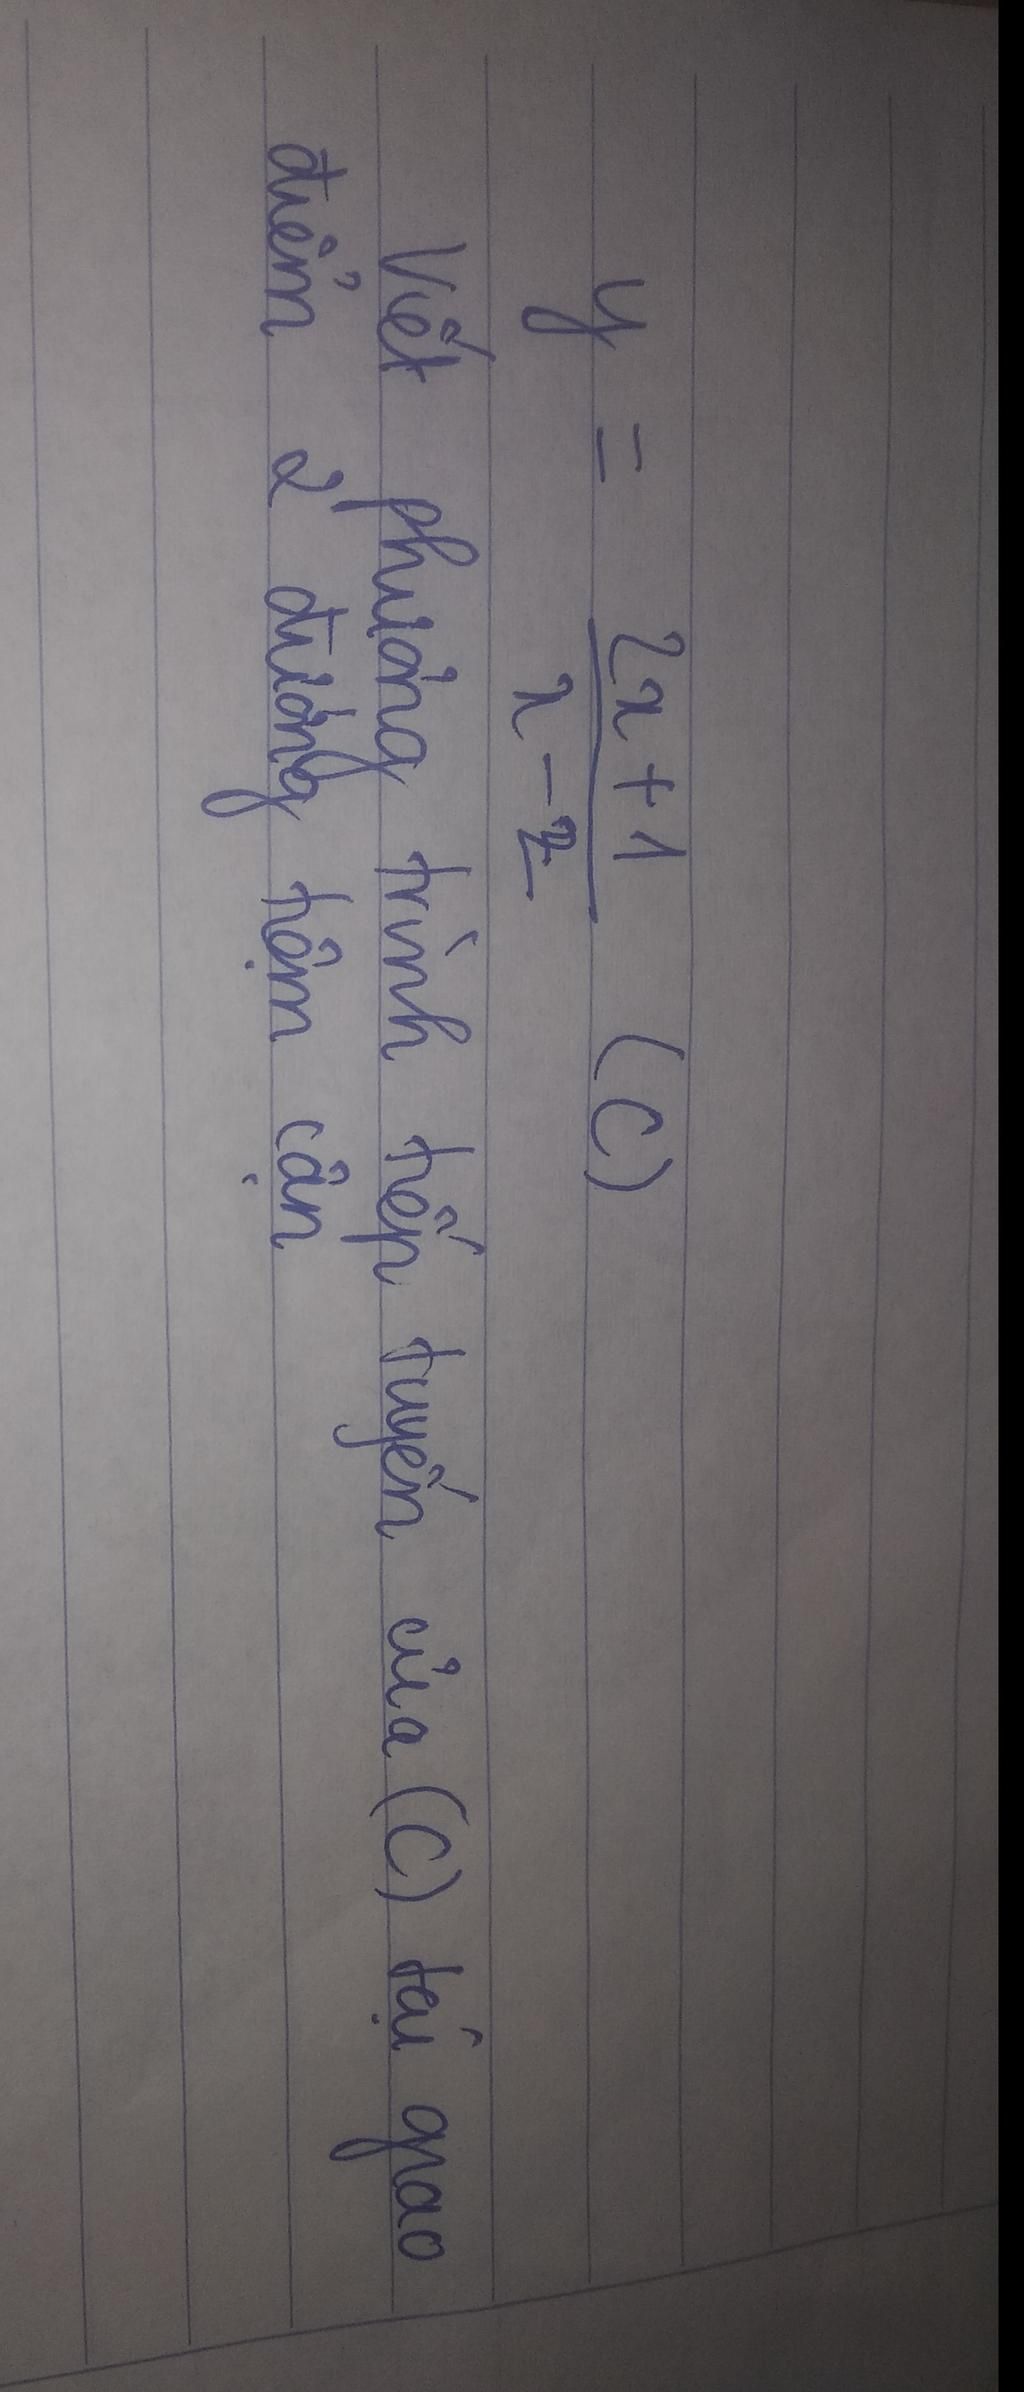 y = \frac{2x+1}{x-2} (C)
Viết phương trình tiếp tuyến của (C) tại giao
điểm 2 đường tiệm cận